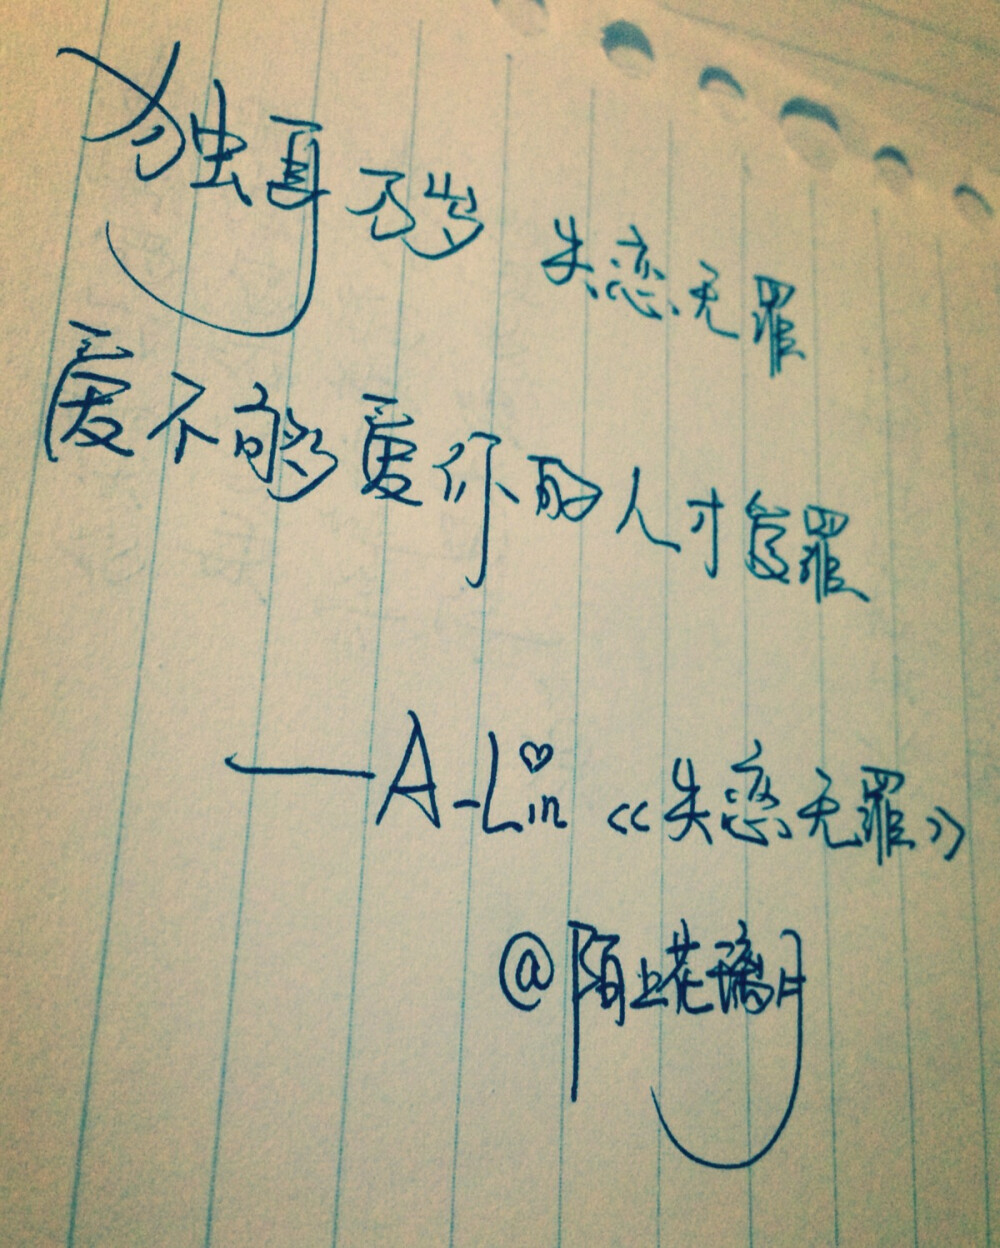 独身万岁 失恋无罪
爱不够爱你的人才是罪
——A-Lin《失恋无罪》
@陌上花璃月